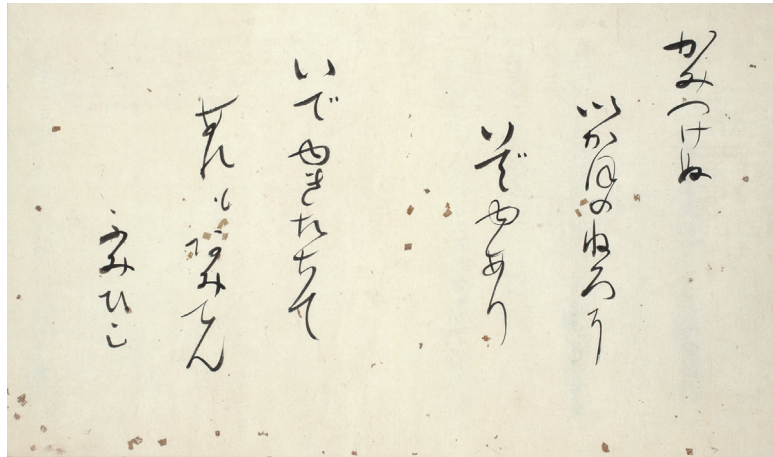 かみつけぬ
いかほのねろに
いでゆあり
いでゆきたちて
あれもあみてん
ふみひこ